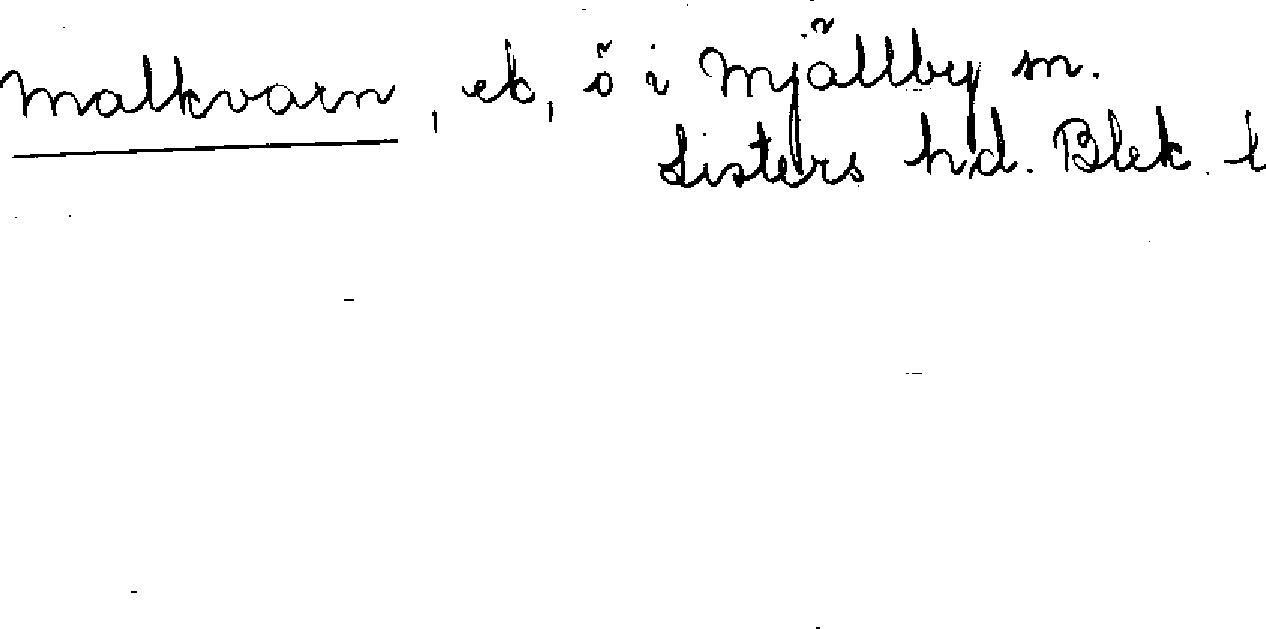 Malkvarn, ek, ö i Mjällby sn.
Listers hd. Blek. l